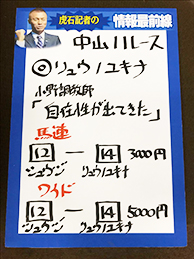 虎石記者の
情報最前線
中山11レース
◎リュウノユキナ
小野調教師
「自在性が出てきた」
馬連
12 ー 14 3000円
シュウジ リュウノユキナ
ワイド
12 ー 14 5000円
シュウジ リュウノユキナ